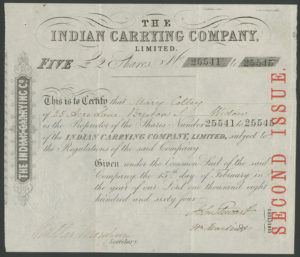 THE
INDIAN CARRYING COMPANY,
LIMITED.
FIVE £2 Shares Nos 25541 to 25545
This is to Certify that Mary
of 25
is the Proprietor of the Shares Number 25541 to 25545
of the INDIAN CARRYING COMPANY, LIMITED, subject to
the Regulations of the said Company.
Given under the Common Seal of the said
Company, the 15th day of February in
the year of our Lord one thousand eight
hundred and sixty four
DIRECTORS.
Secretary.
THE INDIAN CARRYING Co.
SECOND ISSUE.